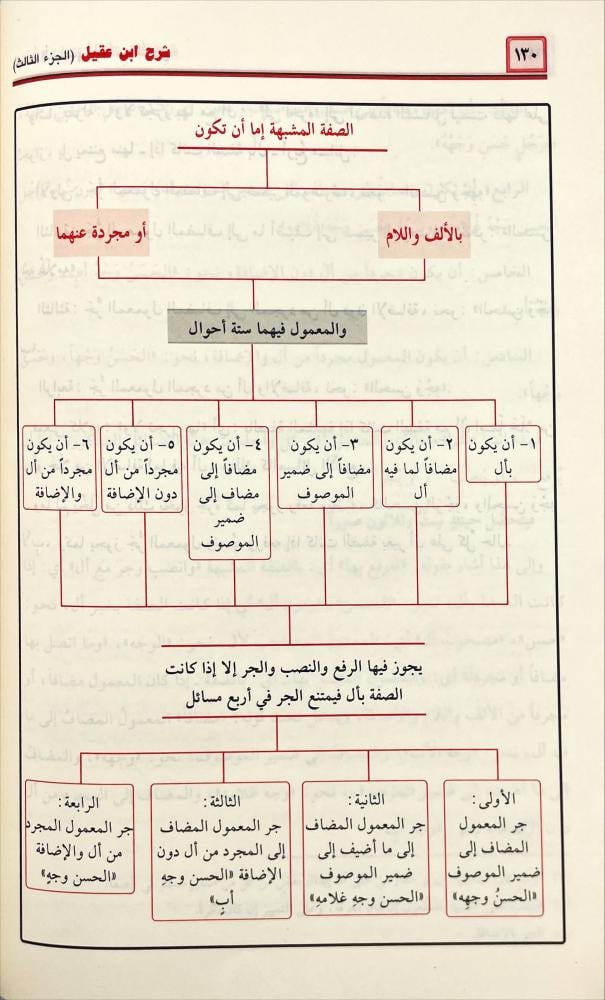 ١٣٠
شرح ابن عقيل (الجزء الثالث)
الصفة المشبهة إما أن تكون
بالألف واللام
أو مجردة عنهما
والمعمول فيهما ستة أحوال
١- أن يكون
بأل
٢- أن يكون
مضافاً لما فيه
أل
٣- أن يكون
مضافاً إلى ضمير
الموصوف
٤- أن يكون
مضافاً إلى
مضاف إلى
ضمير
الموصوف
٥- أن يكون
مجرداً من أل
دون الإضافة
٦- أن يكون
مجرداً من أل
والإضافة
يجوز فيها الرفع والنصب والجر إلا إذا كانت
الصفة بأل فيمتنع الجر في أربع مسائل
الأولى:
جر المعمول
المضاف إلى
ضمير الموصوف
«الحسنُ وجهِه»
الثانية:
جر المعمول المضاف
إلى ما أضيف إلى
ضمير الموصوف
«الحسن وجهِ غلامهِ»
الثالثة:
جر المعمول المضاف
إلى المجرد من أل دون
الإضافة «الحسن وجهِ
أبٍ»
الرابعة:
جر المعمول المجرد
من أل والإضافة
«الحسن وجهٍ»